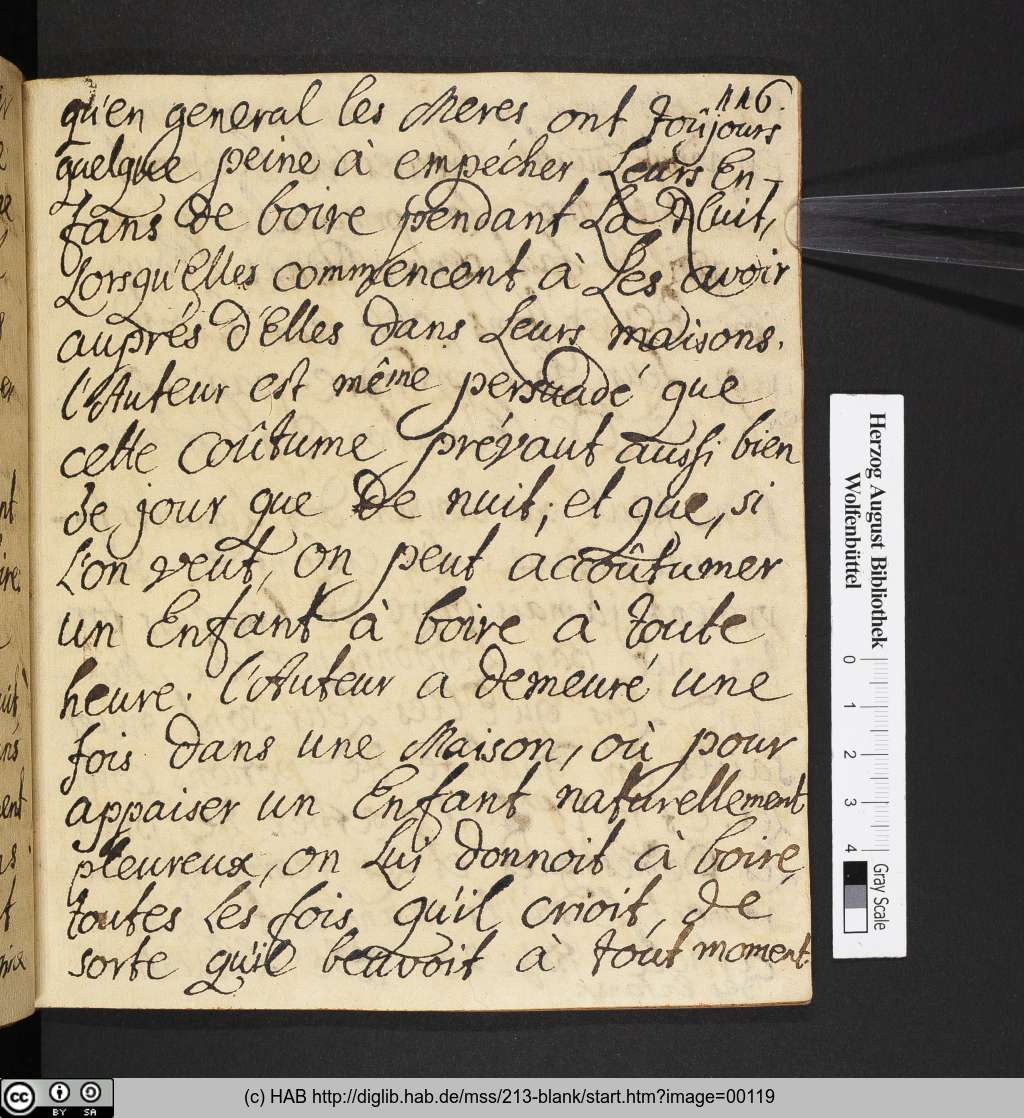 116.
qu'en general les Meres ont toûjours
quelque peine à empécher Leurs En-
fans de boire pendant La Nuit,
Lorsqu'Elles commencent à Les avoir
auprés d'Elles dans Leurs maisons.
l'Auteur est même persuadé que
cette coûtume prévaut aussi bien
de jour que de nuit; et que, si
l'on veut, on peut accoûtumer
un Enfant à boire à toute
heure. l'Auteur a demeuré une
fois dans une Maison, où pour
appaiser un Enfant naturellement
pleureux, on Lui donnoit à boire,
toutes Les fois qu'il crioit, de
sorte qu'il beuvoit à tout moment.
Herzog August Bibliothek
Wolfenbüttel
0 1 2 3 4
Gray Scale
cc BY SA
(c) HAB http://diglib.hab.de/mss/213-blank/start.htm?image=00119